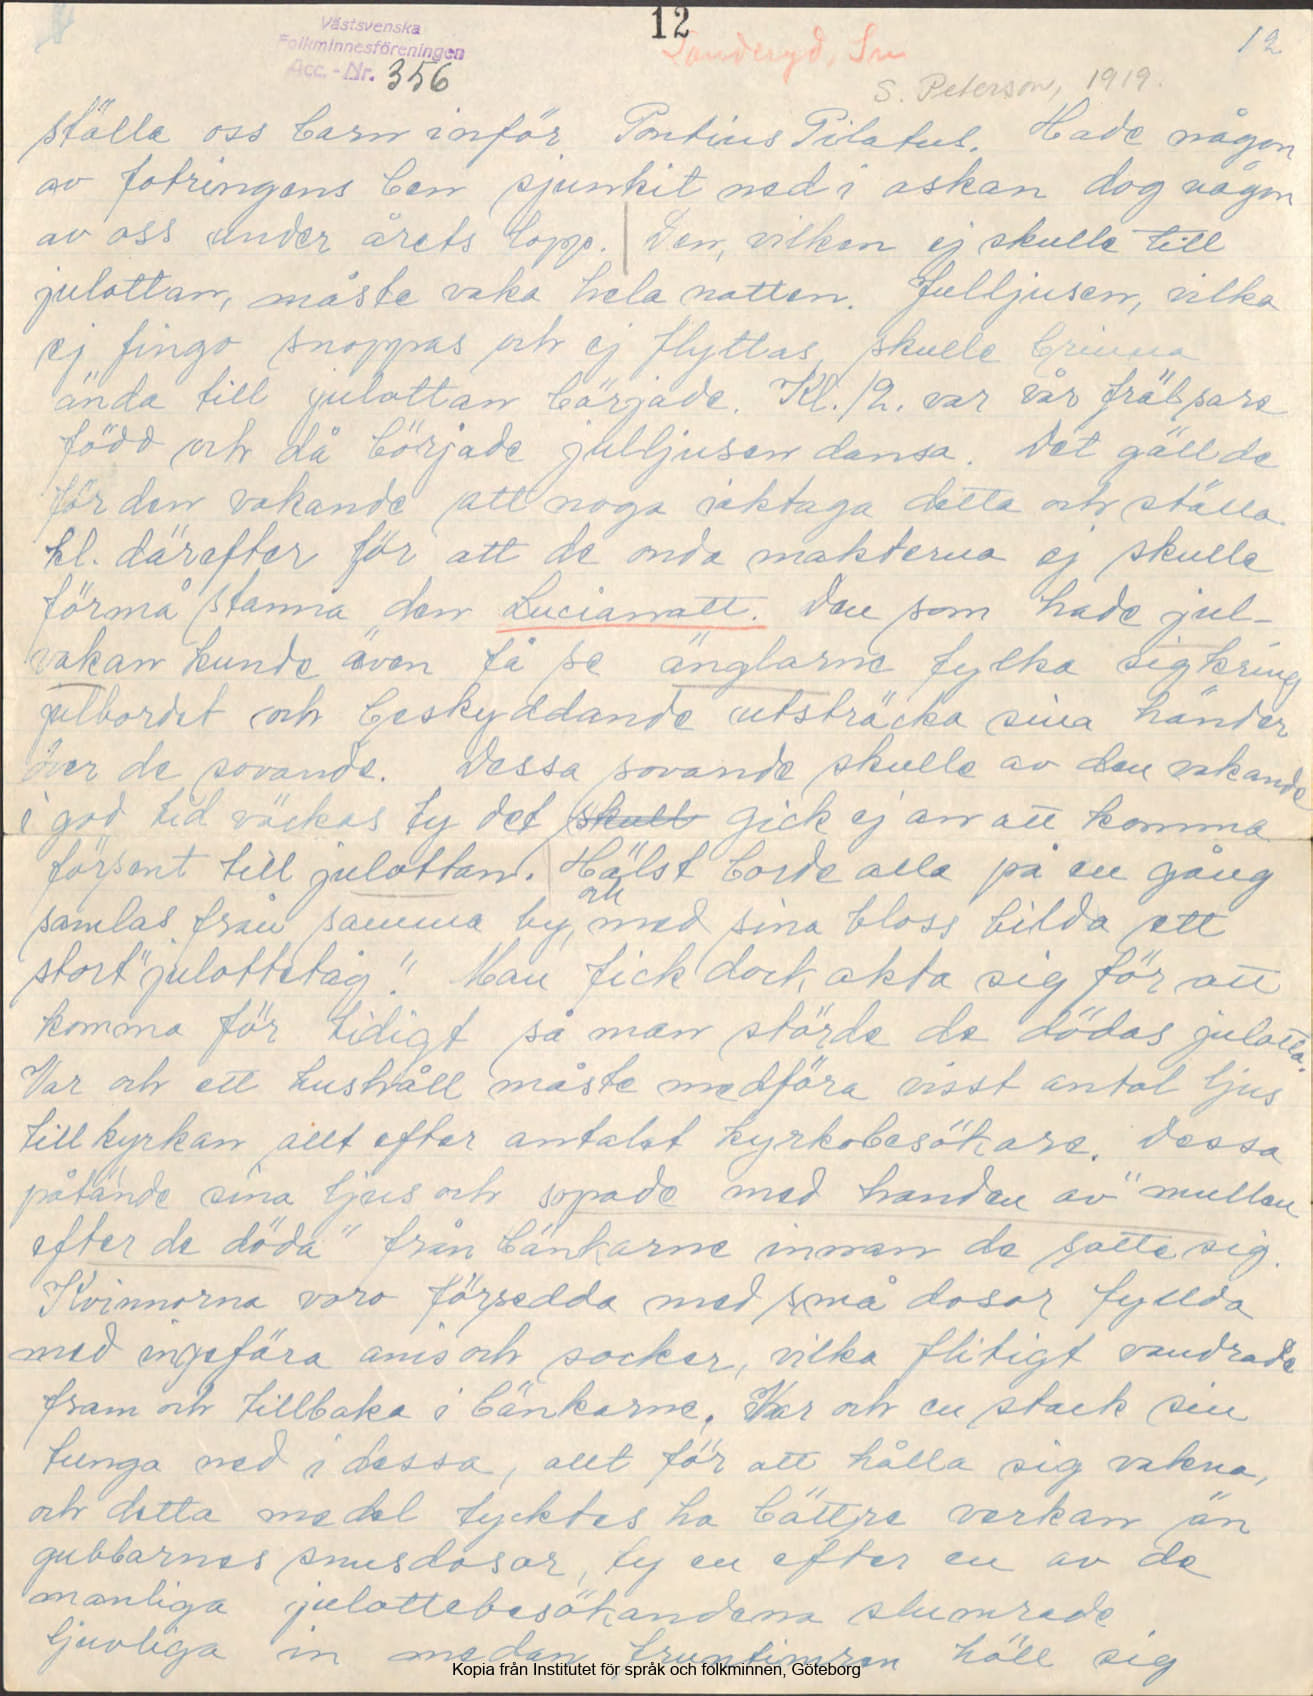 12
Västsvenska
Folkminnesföreningen
Acc. - Nr. 356
Sanderyd, Sm
12
S. Peterson, 1919.
ställa oss barn inför Pontius Pilatus. Hade någon
av fotringens ben sjunkit ned i askan dog någon
av oss under årets lopp. Den, vilken ej skulle till
julottan, måste vaka hela natten. Julljusen, vilka
ej fingo snoppas och ej flyttas, skulle brinna
ända till julottan började. Kl. 12. var vår frälsare
född och då började julljusen dansa. Det gällde
för den vakande att noga iakttaga detta och ställa
kl. därefter för att de onda makterna ej skulle
förmå stanna den Lucianatt. Den som hade jul-
vakan kunde även få se änglarne fylka sig kring
julbordet och beskyddande utsträcka sina händer
över de sovande. Dessa sovande skulle av den vakande
i god tid väckas ty det skull gick ej an att komma
försent till julottan. Hälst borde alla på en gång
samlas från samma by, och med sina bloss bilda ett
stort "julottetåg". Man fick dock akta sig för att
komma för tidigt så man störde de dödas julotta.
Var och ett hushåll måste medföra visst antal ljus
till kyrkan allt efter antalet kyrkobesökare. Dessa
påtände sina ljus och sopade med handen av "mullen
efter de döda" från bänkarne innan de satte sig.
Kvinnorna voro försedda med små dosor fyllda
med ingefära anis och socker, vilka flitigt vandrade
fram och tillbaka i bänkarne. Var och en stack sin
tunga ned i dessa, allt för att hålla sig vakna,
och detta medel tycktes ha bättre verkan än
gubbarnes snusdosor, ty en efter en av de
manliga julottebesökandena slumrade
ljuvliga in medan fruntimren höll sig
Kopia från Institutet för språk och folkminnen, Göteborg